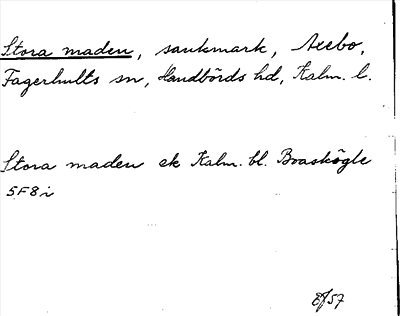 Stora maden, sankmark, Axebo,
Fagerhults sn, Handbörds hd, Kalm. l.
Stora maden ek Kalm. bl. Boaskögle
5F8i
EJ57